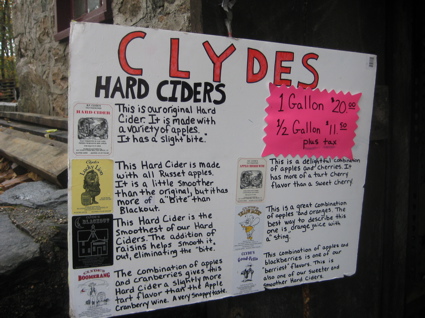 CLYDES
HARD CIDERS
1 Gallon $20.00
1/2 Gallon $11.50
plus tax
HARD CIDER
This is our original Hard
Cider. It is made with
a variety of apples.
It has a slight bite.
This Hard Cider is made
with all Russet apples.
It is a little smoother
than the original, but it has
more of a "Bite" than
Blackout.
BLACKOUT
This Hard Cider is the
Smoothest of our Hard
Ciders. The addition of
raisins helps smooth it
out, eliminating the "bite."
BOOMERANG
The combination of apples
and cranberries gives this
Hard Cider a slightly more
tart flavor than the Apple
Cranberry wine. A very snappy taste.
This is a delightful combination
of apples and cherries. It
has more of a tart cherry
flavor than a sweet cherry.
This is a great combination
of apples and oranges. The
best way to describe this
one is orange juice with
a sting.
This combination of apples and
blackberries is one of our
"berriest" flavors. This is
also one of our sweeter and
smoother Hard Ciders.